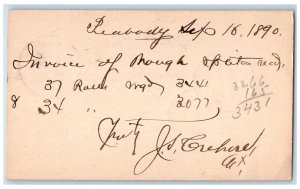 Peabody Sep 16. 1890.
Invoice of Rough Splits recd.
37 Rolls Wgd 3441
8 34 " 3077
3266
165
3431
Truly
J.S. Crehore